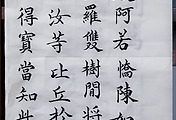 阿若憍陳如
羅雙樹間將
汝等比丘於
得寶當知此